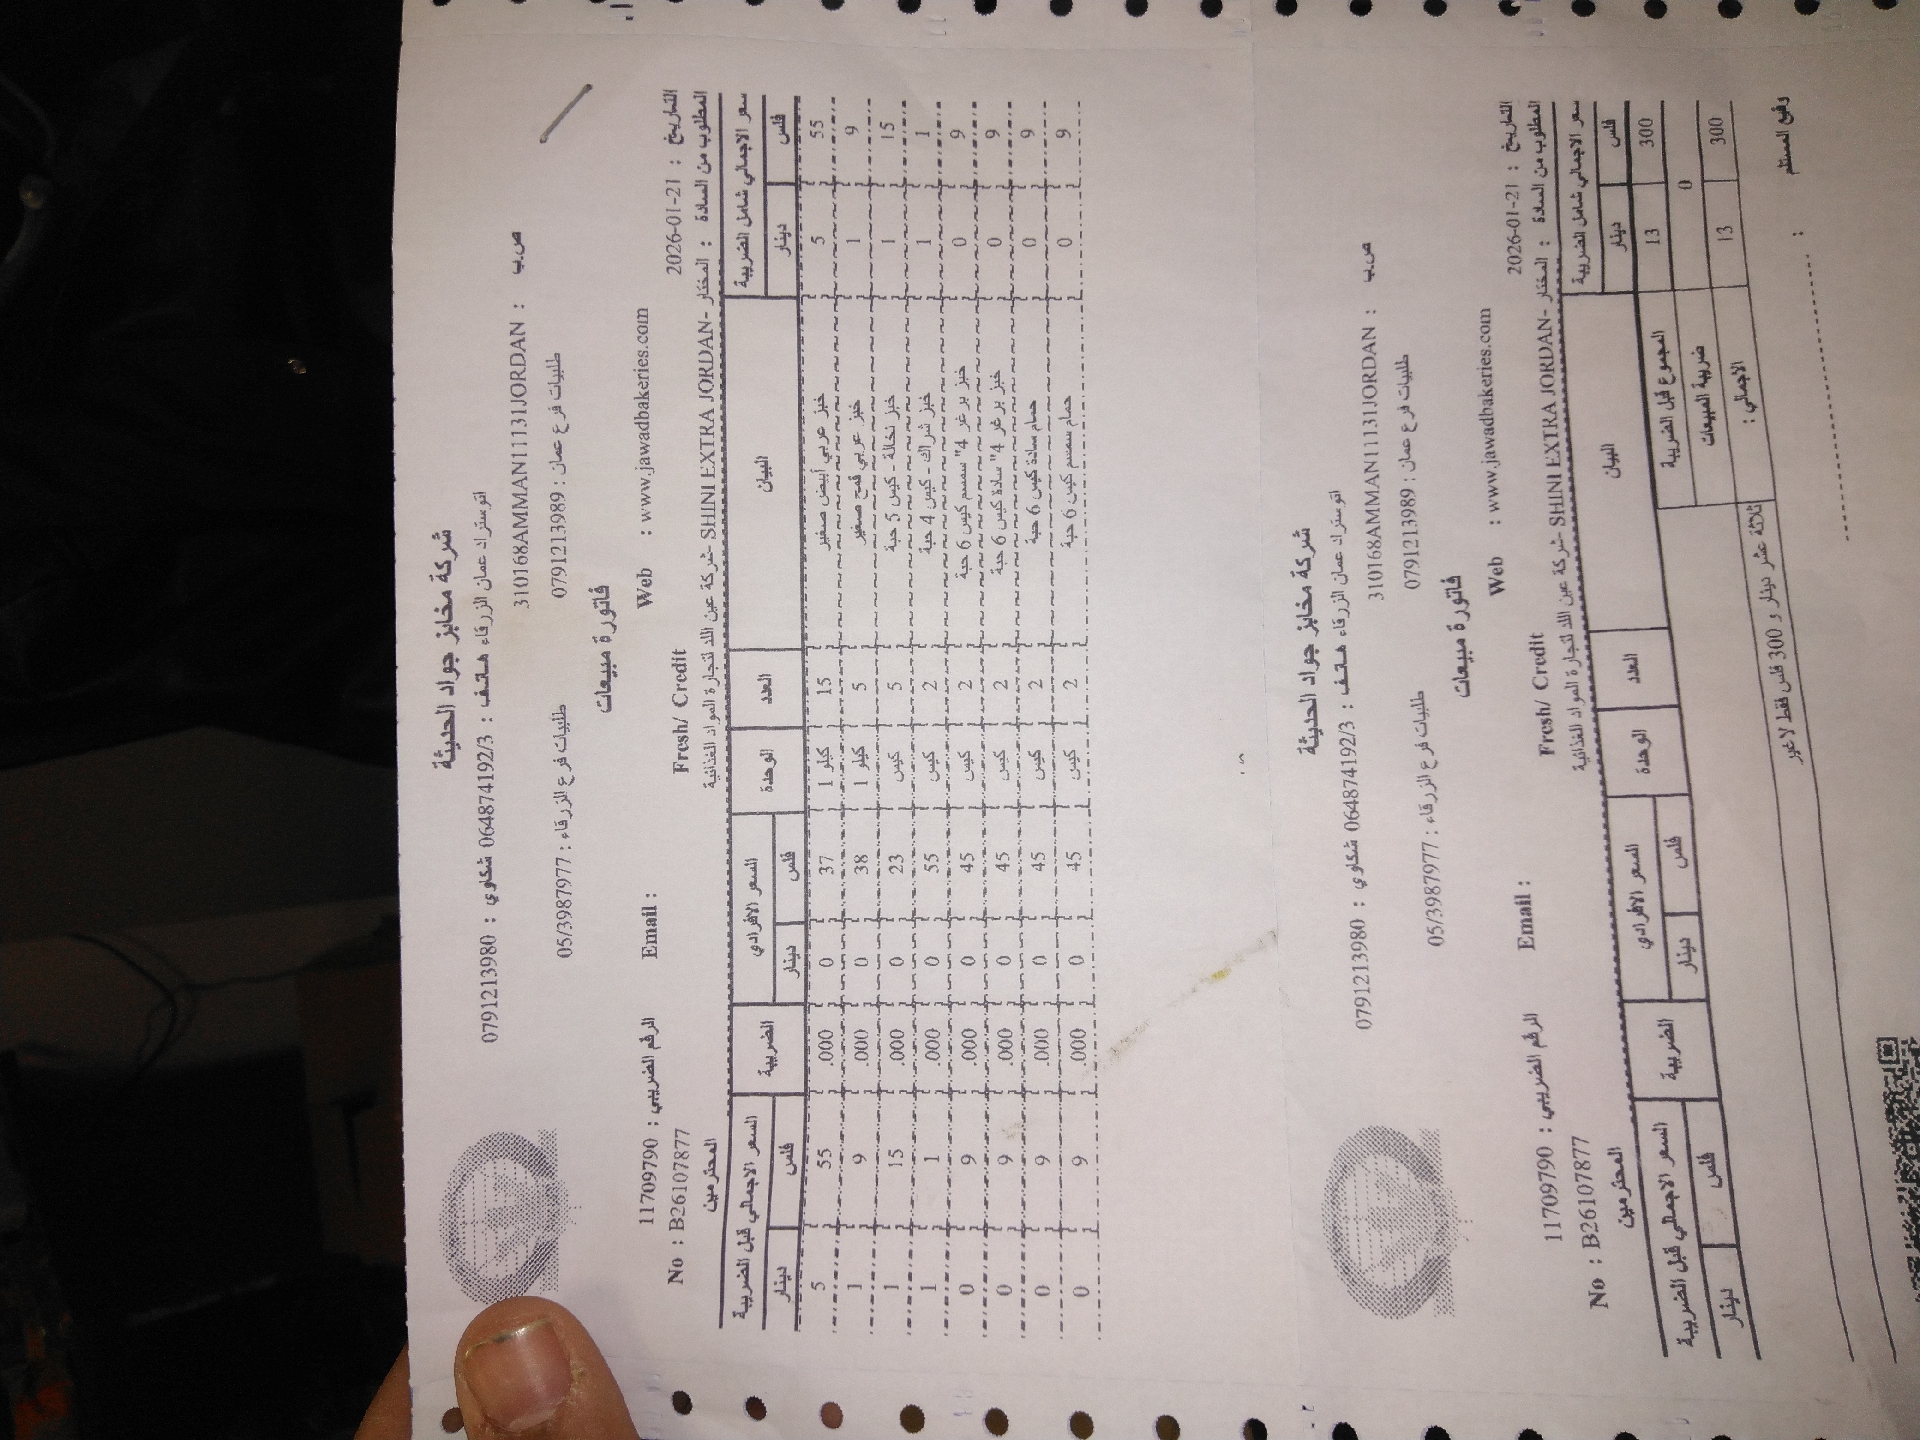 شركة مخابز جواد الحديثة
اتوستراد عمان الزرقاء هاتف : 064874192/3 شكاوي : 0791213980
310168AMMAN11131JORDAN : ص.ب
طلبيات فرع عمان : 0791213989 طلبيات فرع الزرقاء : 05/3987977
فاتورة مبيعات
الرقم الضريبي : 11709790 Email : Web : www.jawadbakeries.com
التاريخ : 2026-01-21 Fresh/ Credit No : B26107877
المطلوب من السادة : المختار -SHINI EXTRA JORDAN -شركة عين اللد لتجارة المواد الغذائية المحترمين
سعر الاجمالي شامل الضريبة البيان العدد الوحدة السعر الافرادي الضريبة السعر الاجمالي قبل الضريبة
فلس دينار فلس دينار فلس دينار
55 5 خبز عربي أبيض صغير 15 كيلو 1 37 0 .000 55 5
9 1 خبز عربي قمح صغير 5 كيلو 1 38 0 .000 9 1
15 1 خبز نخالة - كيس 5 حبة 5 كيس 23 0 .000 15 1
1 1 خبز شراك - كيس 4 حبة 2 كيس 55 0 .000 1 1
9 0 خبز برغر 4" سمسم كيس 6 حبة 2 كيس 45 0 .000 9 0
9 0 خبز برغر 4" سادة كيس 6 حبة 2 كيس 45 0 .000 9 0
9 0 حمام سادة كيس 6 حبة 2 كيس 45 0 .000 9 0
9 0 حمام سمسم كيس 6 حبة 2 كيس 45 0 .000 9 0
شركة مخابز جواد الحديثة
اتوستراد عمان الزرقاء هاتف : 064874192/3 شكاوي : 0791213980
310168AMMAN11131JORDAN : ص.ب
طلبيات فرع عمان : 0791213989 طلبيات فرع الزرقاء : 05/3987977
فاتورة مبيعات
الرقم الضريبي : 11709790 Email : Web : www.jawadbakeries.com
التاريخ : 2026-01-21 Fresh/ Credit No : B26107877
المطلوب من السادة : المختار -SHINI EXTRA JORDAN -شركة عين اللد لتجارة المواد الغذائية المحترمين
سعر الاجمالي شامل الضريبة البيان العدد الوحدة السعر الافرادي الضريبة السعر الاجمالي قبل الضريبة
فلس دينار فلس دينار فلس دينار
300 13 المجموع قبل الضريبة
0 ضريبة المبيعات
300 13 الاجمالي :
ثلاثة عشر دينار و 300 فلس فقط لا غير
: